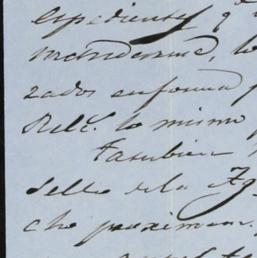 expedientes q
mandarme, lo
zados en forma
Relc. lo mismo
Tambien
Sello de la Ag
cho proximam